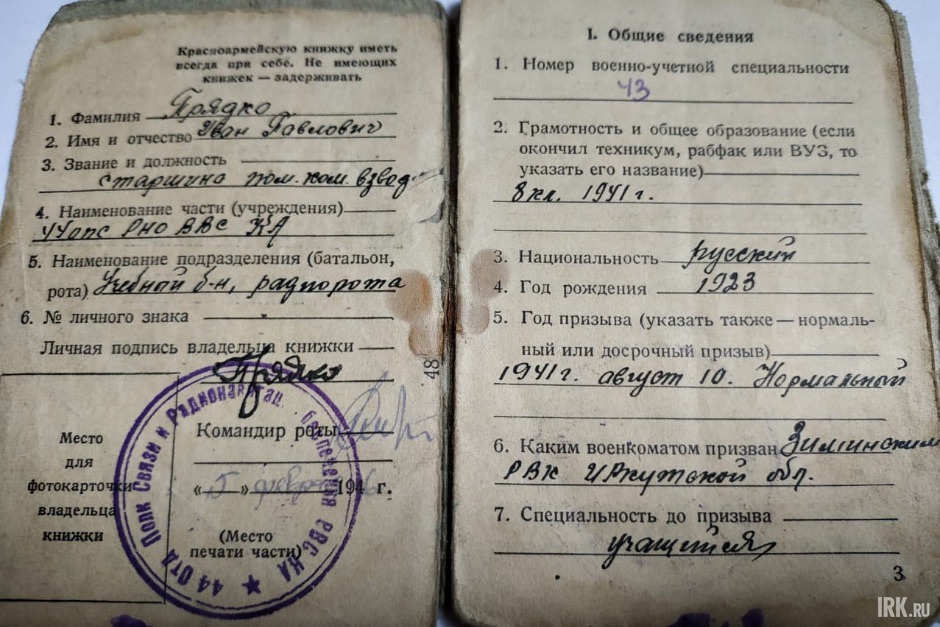 Красноармейскую книжку иметь
всегда при себе. Не имеющих
книжек — задерживать
1. Фамилия Прядко
2. Имя и отчество Иван Павлович
3. Звание и должность
старшина пом. ком. взвода
4. Наименование части (учреждения)
РНО ВВС КА
5. Наименование подразделения (батальон,
рота) Учебной б-н, радиорота
6. № личного знака
Личная подпись владельца книжки
Прядко
Командир роты
Место
для
фотокарточки
владельца
книжки
«5» 194 г.
(Место
печати части)
44 Отд Полк Связи и
48
I. Общие сведения
1. Номер военно-учетной специальности
43
2. Грамотность и общее образование (если
окончил техникум, рабфак или ВУЗ, то
указать его название)
8 кл. 1941 г.
3. Национальность русский
4. Год рождения 1923
5. Год призыва (указать также — нормаль-
ный или досрочный призыв)
1941 г. август 10. Нормальный
6. Каким военкоматом призван Зиминским
РВК Иркутской обл.
7. Специальность до призыва
учащийся
3
IRK.RU